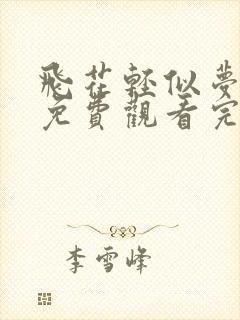 飛花輕似夢
免費觀看完
李雪峰